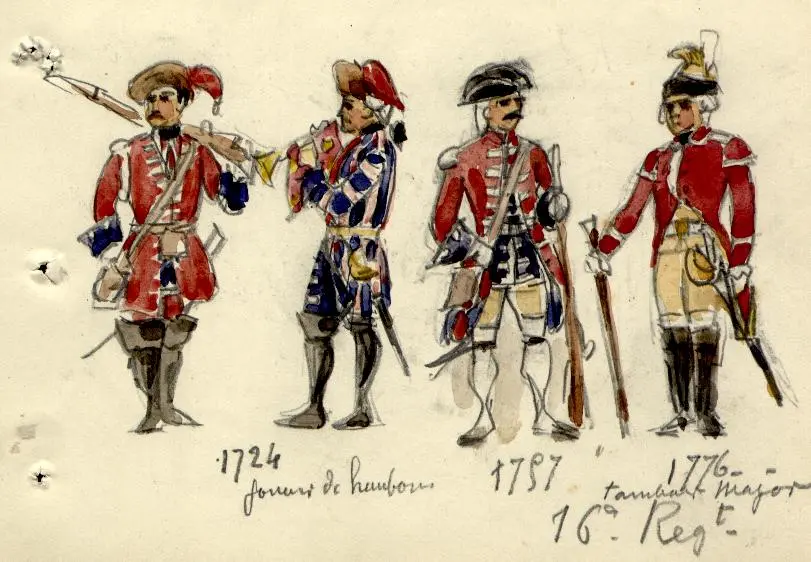 1724
joueur de hautbois
1757
1776
tambour Major
16e. Regt.